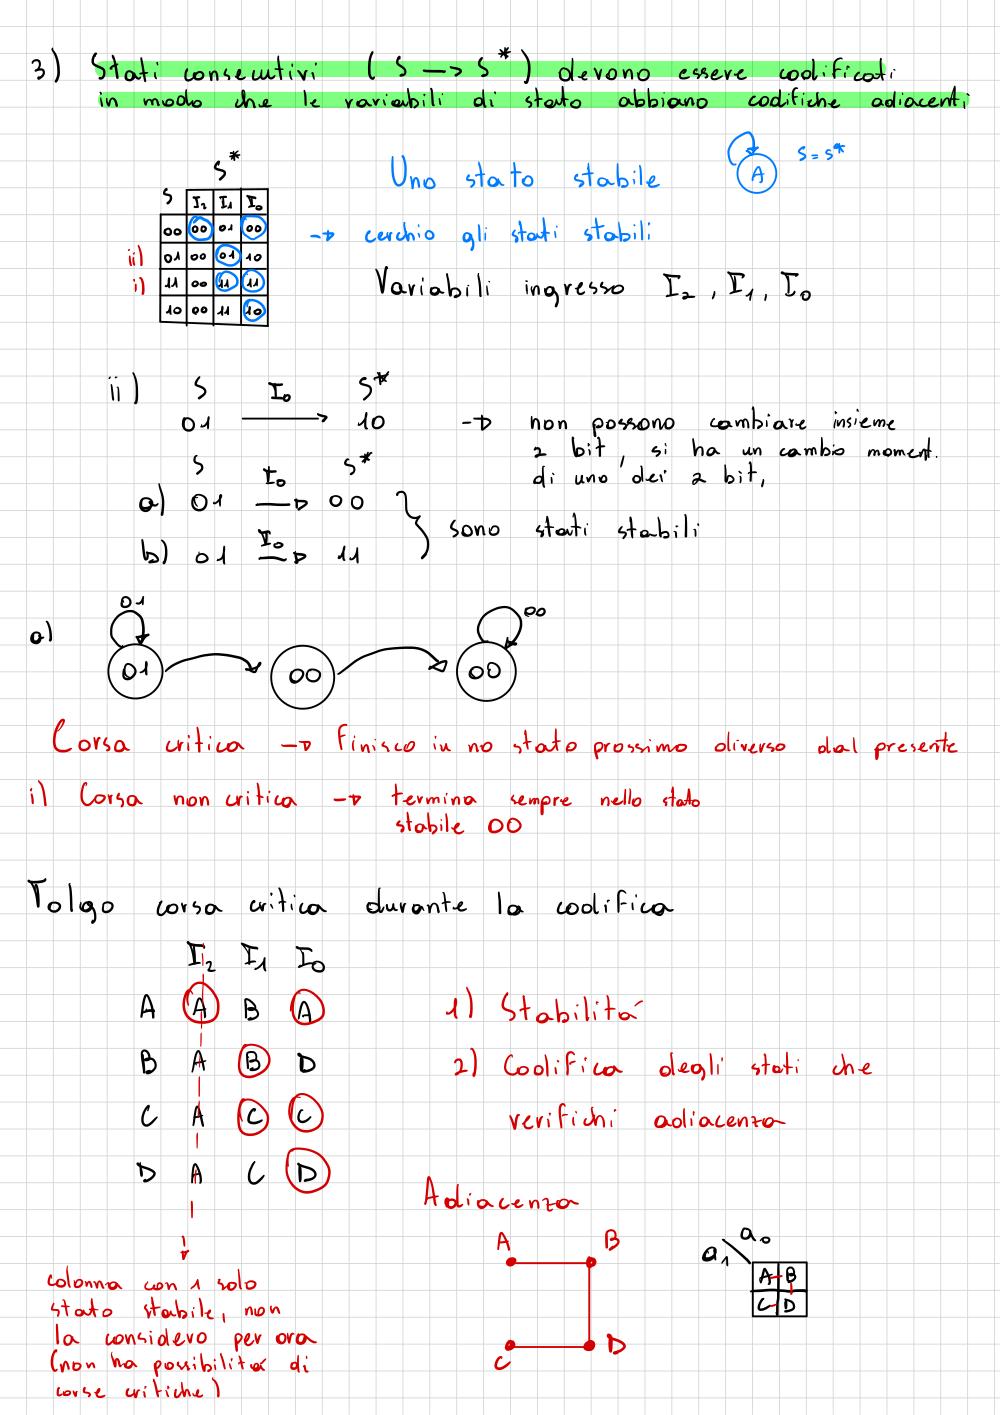 3) Stati consecutivi (S —> S*) devono essere codificati
in modo che le variabili di stato abbiano codifiche adiacenti
S*
S I2 I1 I0
00 00 01 00
ii) 01 00 01 10
i) 11 00 11 11
10 00 11 10
Uno stato stabile
A S=S*
→ cerchio gli stati stabili
Variabili ingresso I2, I1, I0
ii) S I0 S*
01 10 → non possono cambiare insieme
2 bit, si ha un cambio moment.
di uno dei 2 bit,
S I0 S*
a) 01 00
b) 01 I0 11
sono stati stabili
a)
01 00
01 00 00
Corsa critica → Finisco in no stato prossimo diverso dal presente
i) Corsa non critica → termina sempre nello stato
stabile 00
Tolgo corsa critica durante la codifica
I2 I1 I0
A A B A
B A B D
C A C C
D A C D
1) Stabilitá
2) Codifica degli stati che
verifichi adiacenza
colonna con 1 solo
stato stabile, non
la considero per ora
(non ha possibilitá di
corse critiche)
Adiacenza
A B
C D
a1 a0
A B
C D